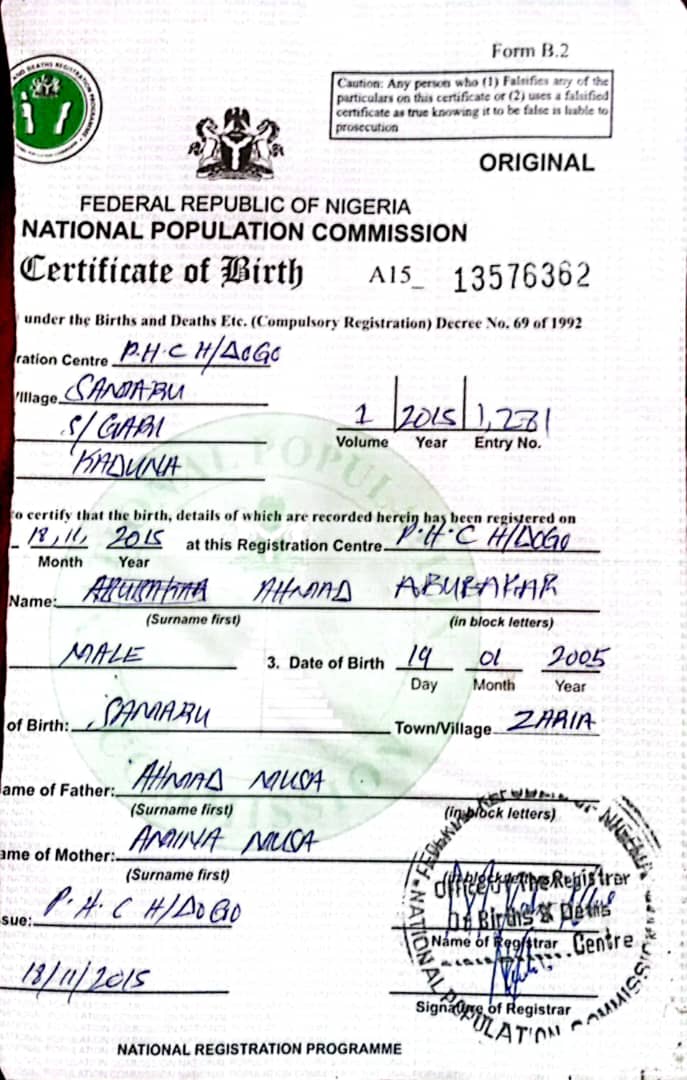 Form B.2
Caution: Any person who (1) Falsifies any of the
particulars on this certificate or (2) uses a falsified
certificate as true knowing it to be false is liable to
prosecution
ORIGINAL
FEDERAL REPUBLIC OF NIGERIA
NATIONAL POPULATION COMMISSION
Certificate of Birth A15_ 13576362
under the Births and Deaths Etc. (Compulsory Registration) Decree No. 69 of 1992
ration Centre P.H.C H/DOGO
Village SAMARU
S/GARI
KADUNA
1 2015 1,231
Volume Year Entry No.
to certify that the birth, details of which are recorded herein has been registered on
18, 11, 2015 at this Registration Centre P.H.C H/DOGO
Month Year
Name: AHMAD ABUBAKAR
(Surname first) (in block letters)
MALE 3. Date of Birth 19 01 2005
Day Month Year
of Birth: SAMARU Town/Village ZARIA
ame of Father: AHMAD MUSA
(Surname first) (in block letters)
ame of Mother: AMINA MUSA
(Surname first)
Office of The Registrar
Of Births & Deths
sue: P.H.C H/DOGO
Name of Registrar Centre
18/11/2015
Signature of Registrar
NATIONAL POPULATION COMMISSION
NATIONAL REGISTRATION PROGRAMME